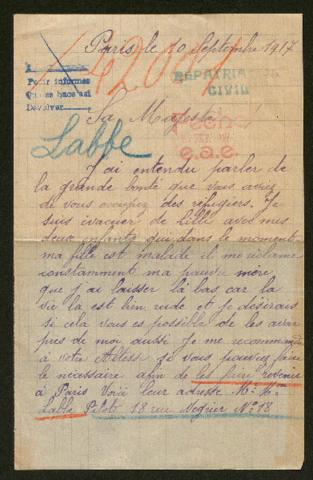 Paris le 10 Septembre 1917
A
Pedir informes
Que se hace así
Devolver
REPATRIA
CIVIL
Sa Majesté
Fecha
e.a.e.
Labbe
J'ai entendu parler de
la grande bonté que vous aviez
de vous occupez des réfugiers. Je
suis évacuer de Lille avec mes
deux enfants qui dans le moment
ma fille est malade il me réclame
constamment ma pauvre mère
que j'ai laisser là bas car la
vie là est bien rude et je désirais
si cela vous es possible de les avoir
pres de moi aussi Je me recommande
à votre Altesse si vous pouviez faire
le nécessaire afin de les faire revenir
à Paris Voià leur adresse Mr Mme
Labbe Pilote 18 rue Négrier No 18